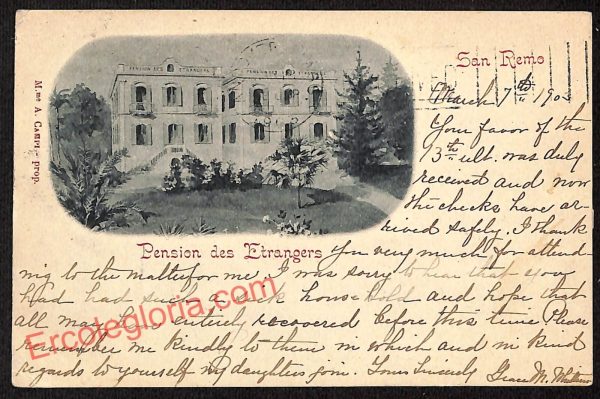 PENSION DES ETRANGERS
PENSION DES ETRANGERS
San Remo
M.me A. CAMPI - prop.
March 7th 190
Your favor of the
13th ult. was duly
received and now
the checks have ar-
rived safely. I thank
Pension des Etrangers
you very much for attend-
ing to the matter for me. I was sorry to hear that you
had had such a sick household and hope that
all may be entirely recovered before this time. Please
remember me kindly to them in which and in kind
regards to yourself my daughters join. Yours Sincerely Grace M.
Ercolegloria.com